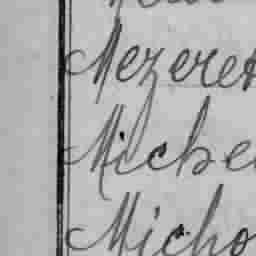 Mezeret
Miche
Micho